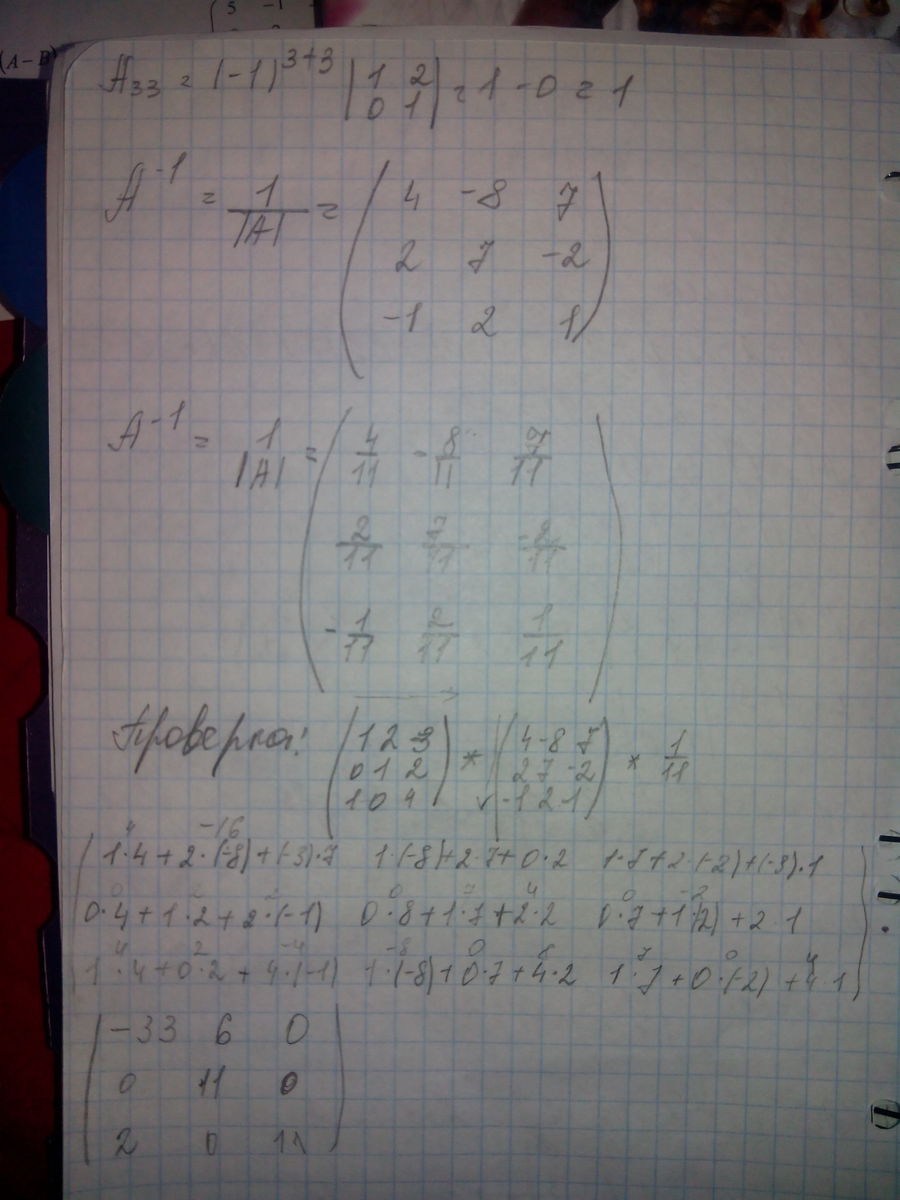 5 -1
(A-B)
A₃₃ = (-1)³⁺³ |1 2| = 1 - 0 = 1
0 1
A⁻¹ = 1/|A| = (4 -8 7
2 7 -2
-1 2 1)
A⁻¹ = 1/|A| = (4/11 -8/11 7/11
2/11 7/11 -2/11
-1/11 2/11 1/11)
Проверка: (1 2 -3) * (4 -8 7) * 1/11
0 1 2 2 7 -2
1 0 4 -1 2 1
4 -16
1·4+2·(-8)+(-3)·7 1·(-8)+2·7+0·2 1·7+2·(-2)+(-3)·1
0 2 -2 0 7 4 0 -2
0·4+1·2+2·(-1) 0·8+1·7+2·2 0·7+1·(2)+2·1
4 2 -4 -8 0 8 7 0 4
1·4+0·2+4·(-1) 1·(-8)+0·7+4·2 1·7+0·(-2)+4·1
-33 6 0
0 11 0
2 0 11